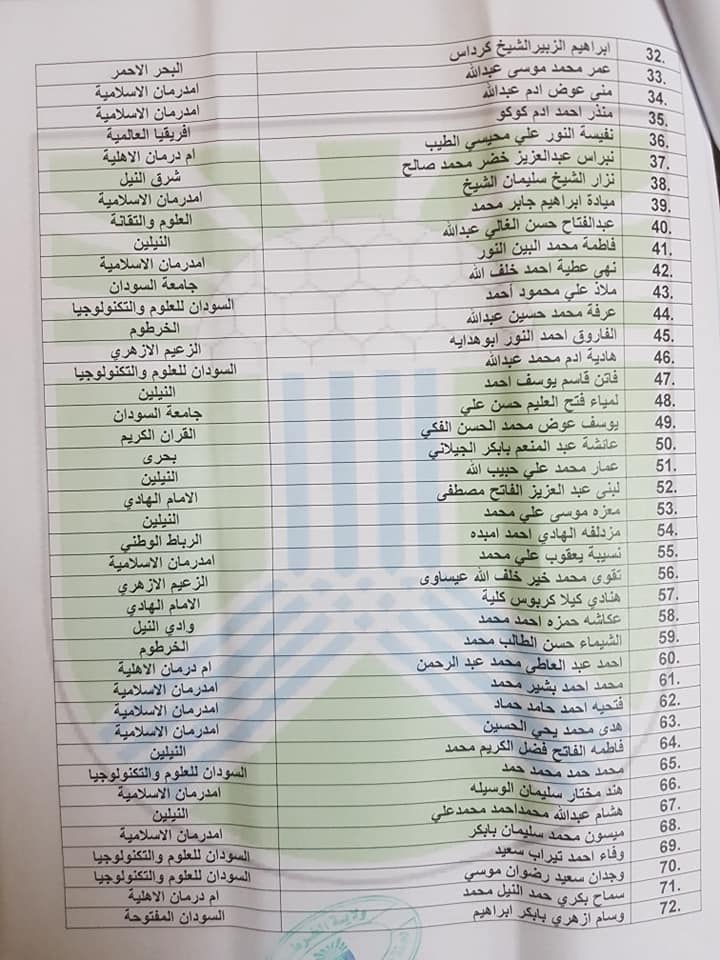 32. ابراهيم الزبيرالشيخ كرداس البحر الاحمر
33. عمر محمد موسى عبدالله امدرمان الاسلامية
34. منى عوض ادم عبدالله امدرمان الاسلامية
35. منذر احمد ادم كوكو افريقيا العالمية
36. نفيسة النور علي محيسي الطيب ام درمان الاهلية
37. نبراس عبدالعزيز خضر محمد صالح شرق النيل
38. نزار الشيخ سليمان الشيخ امدرمان الاسلامية
39. ميادة ابراهيم جابر محمد العلوم والتقانة
40. عبدالفتاح حسن الغالي عبدالله النيلين
41. فاطمة محمد البين النور امدرمان الاسلامية
42. نهى عطية احمد خلف الله جامعة السودان
43. ملاذ علي محمود أحمد السودان للعلوم والتكنولوجيا
44. عرفة محمد حسين عبدالله الخرطوم
45. الفاروق احمد النور ابوهدايه الزعيم الازهري
46. هادية ادم محمد عبدالله السودان للعلوم والتكنولوجيا
47. فاتن قاسم يوسف احمد النيلين
48. لمياء فتح العليم حسن علي جامعة السودان
49. يوسف عوض محمد الحسن الفكي القران الكريم
50. عائشة عبد المنعم بابكر الجيلاني بحرى
51. عمار محمد علي حبيب الله النيلين
52. لبنى عبد العزيز الفاتح مصطفى الامام الهادي
53. معزه موسى علي محمد النيلين
54. مزدلفه الهادي احمد امبده الرباط الوطني
55. نسيبة يعقوب علي محمد امدرمان الاسلامية
56. تقوى محمد خير خلف الله عيساوى الزعيم الازهري
57. هنادي كيلا كربوس كلية الامام الهادي
58. عكاشه حمزه احمد محمد وادي النيل
59. الشيماء حسن الطالب محمد الخرطوم
60. احمد عبد العاطي محمد عبد الرحمن ام درمان الاهلية
61. محمد احمد بشير محمد امدرمان الاسلامية
62. فتحيه احمد حامد حماد امدرمان الاسلامية
63. هدى محمد يحي الحسين امدرمان الاسلامية
64. فاطمه الفاتح فضل الكريم محمد النيلين
65. محمد حمد محمد حمد السودان للعلوم والتكنولوجيا
66. هند مختار سليمان الوسيله امدرمان الاسلامية
67. هشام عبدالله محمداحمد محمدعلي النيلين
68. ميسون محمد سليمان بابكر امدرمان الاسلامية
69. وفاء احمد تيراب سعيد السودان للعلوم والتكنولوجيا
70. وجدان سعيد رضوان موسي السودان للعلوم والتكنولوجيا
71. سماح بكري حمد النيل محمد ام درمان الاهلية
72. وسام ازهري بابكر ابراهيم السودان المفتوحة